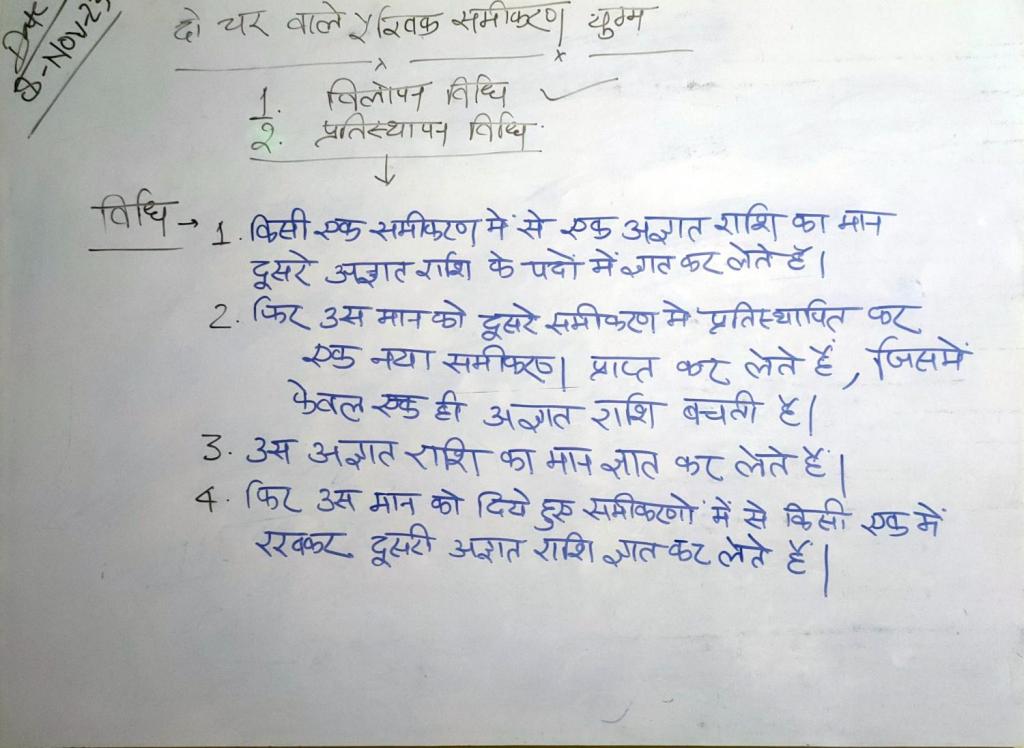 Date
8-Nov-23
दो चर वाले रैखिक समीकरण युग्म
1. विलोपन विधि ✓
2. प्रतिस्थापन विधि.
↓
विधि → 1. किसी एक समीकरण में से एक अज्ञात राशि का मान
दूसरे अज्ञात राशि के पदों में ज्ञात कर लेते हैं।
2. फिर उस मान को दूसरे समीकरण मे प्रतिस्थापित कर
एक नया समीकरण प्राप्त कर लेते हैं, जिसमें
केवल एक ही अज्ञात राशि बचती है।
3. उस अज्ञात राशि का मान ज्ञात कर लेते हैं।
4. फिर उस मान को दिये हुए समीकरणों में से किसी एक में
रखकर दूसरी अज्ञात राशि ज्ञात कर लेते हैं।